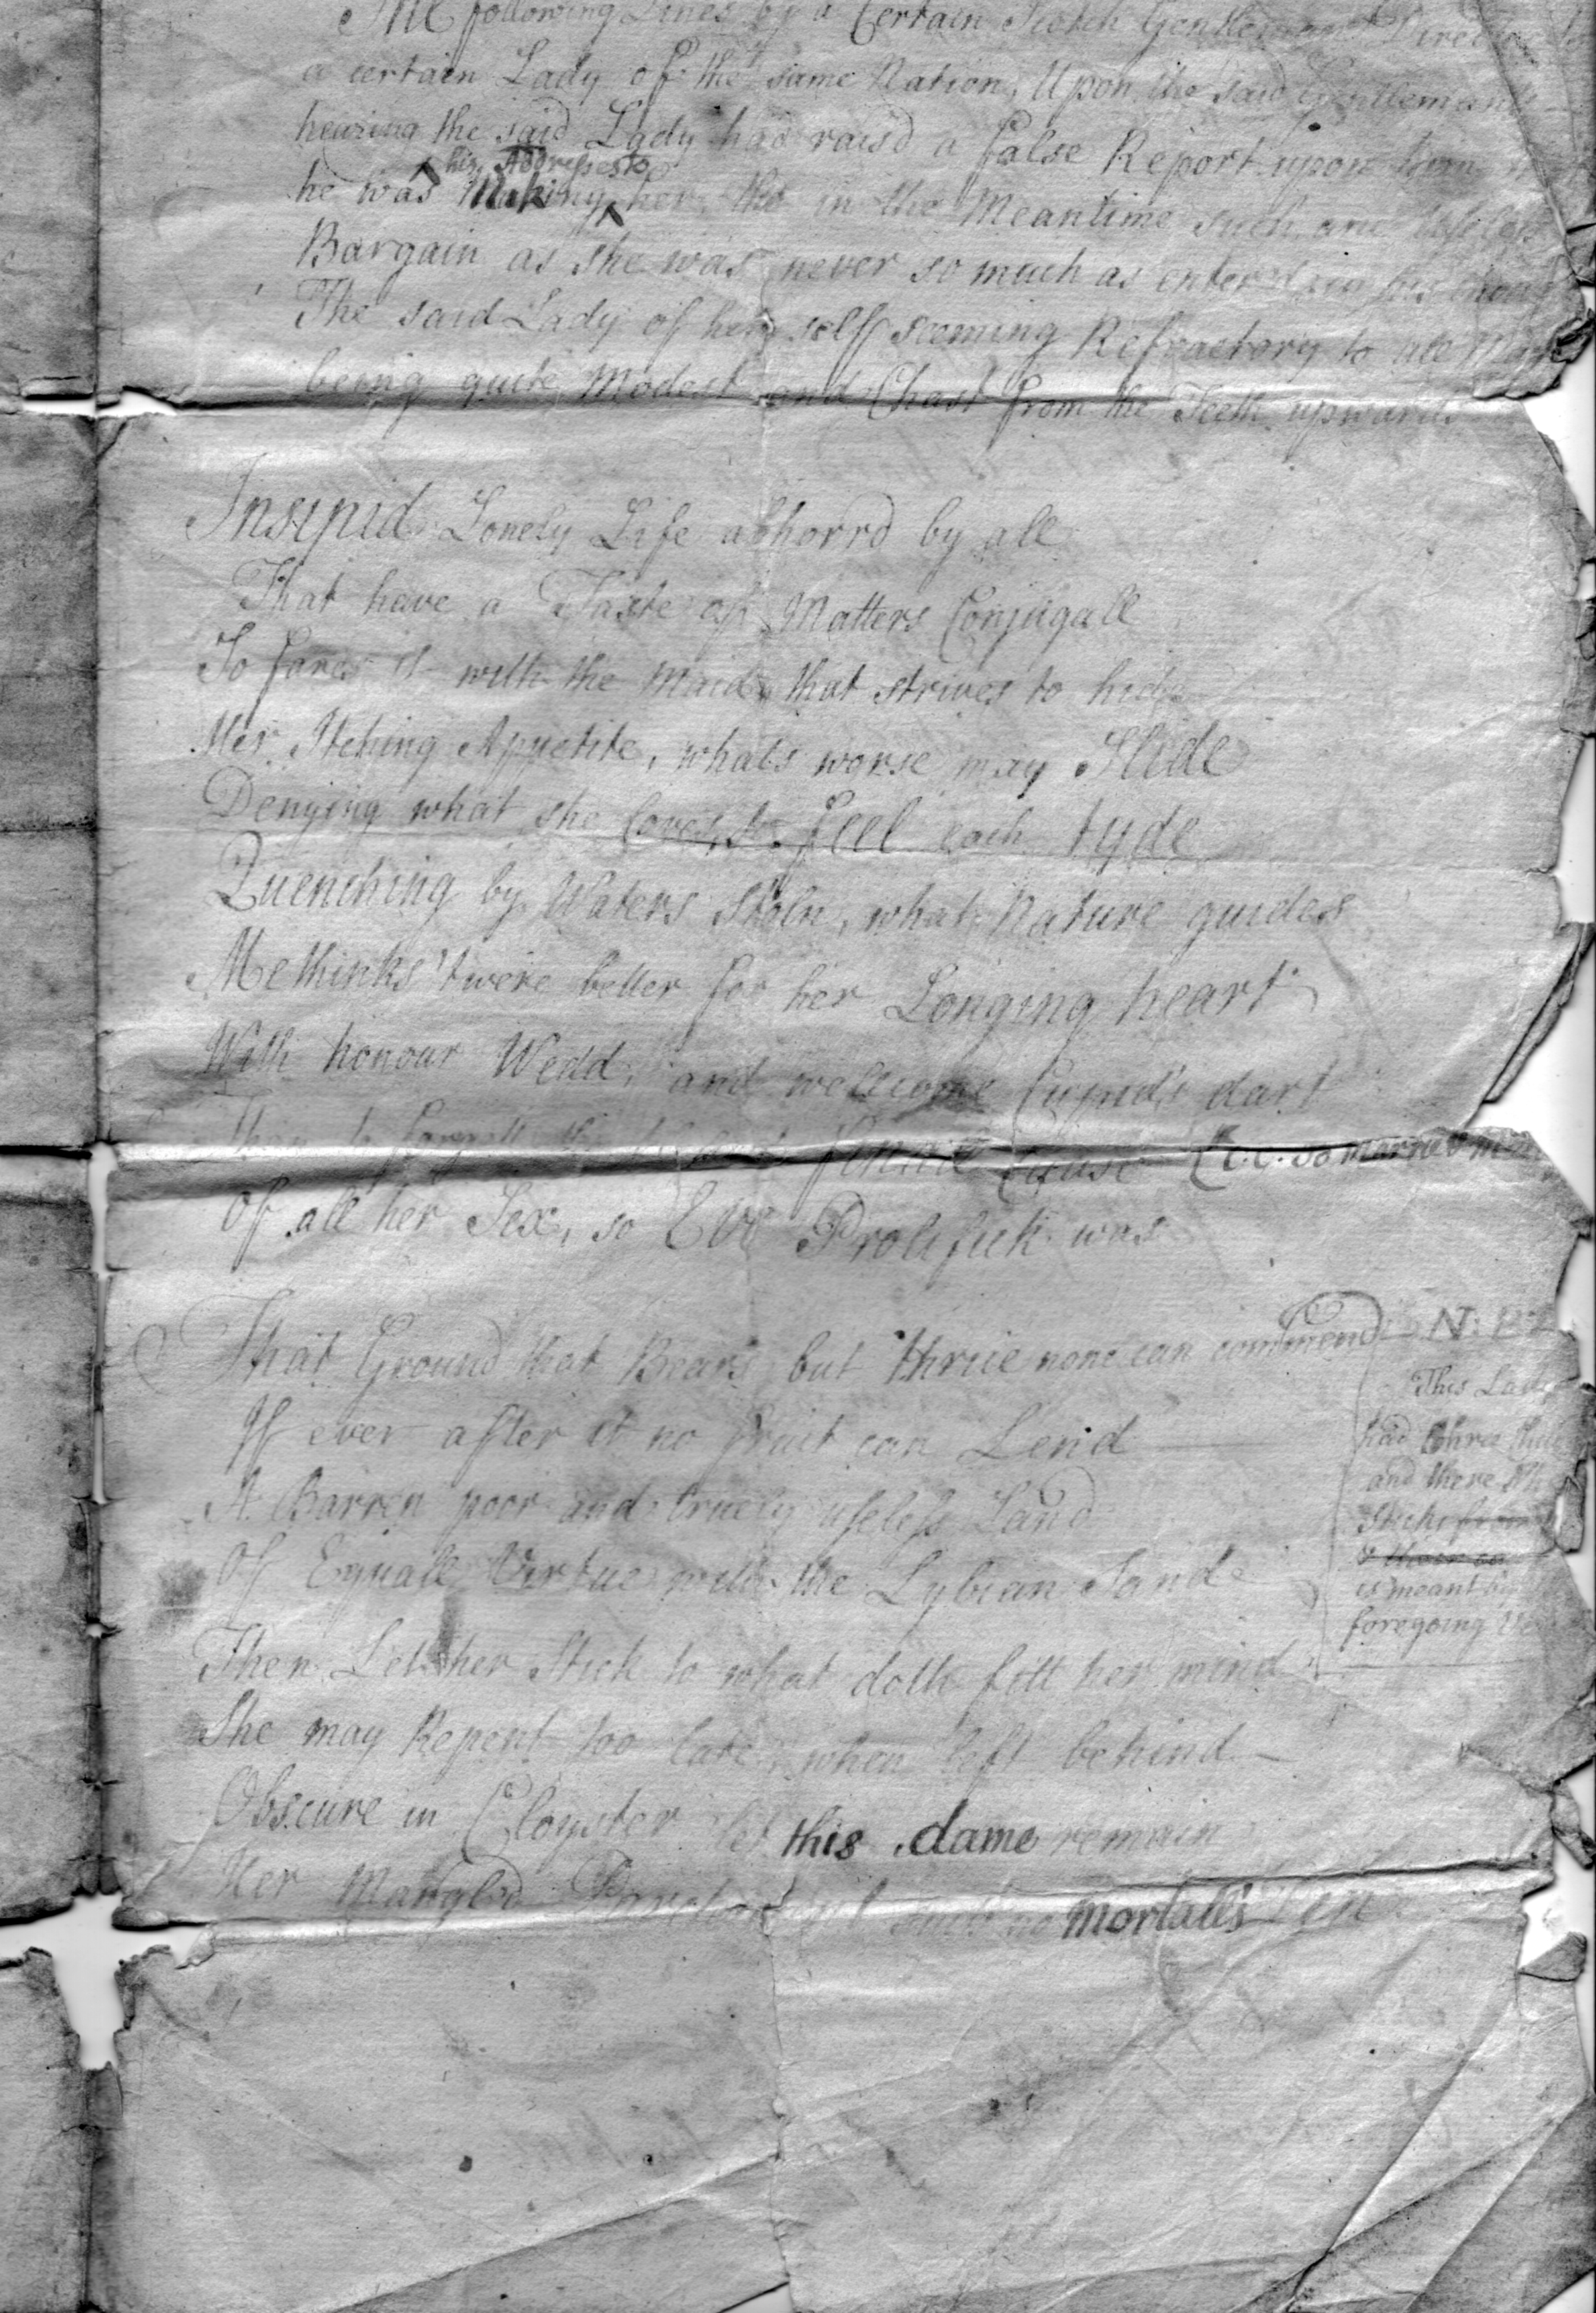 The following Lines by a Certain Scotch Gentleman Directed to
a certain Lady of the same Nation, Upon the said Gentleman's
hearing the said Lady had rais'd a false Report upon him
his Addresses to
he was Making her, tho in the Meantime such ane useless
Bargain as she was never so much as enter'd in his thought
The said Lady of her self seeming Refractory to all
being quite Modest and Chast from the Teeth upwards
Insipid Lonely Life abhorrd by all
That have a Taste of Matters Conjugall
So fares it with the Maid that strives to hide
Her Itching Appetite, whats worse may Slide
Denying what she loves to feel each tyde
Quenching by Waters Stoln, what Nature guides
Methinks 'twere better for her Longing heart
With honour Wedd, and wellcome Cupid's dart
than to female Cause
Of all her Sex, so Eve Prolifick was
That Ground that Bears but thrice none can commend
If ever after it no fruit can Lend
A Barren poor and truely useless Land
Of Equall Virtue with the Lybian Sand
Then Let her Stick to what doth fitt her mind
She may Repent too late, when left behind
Obscure in Cloyster let this dame remain
Her Mangled no mortall's
N: B:
This Lady
had three
and there
is meant by
foregoing